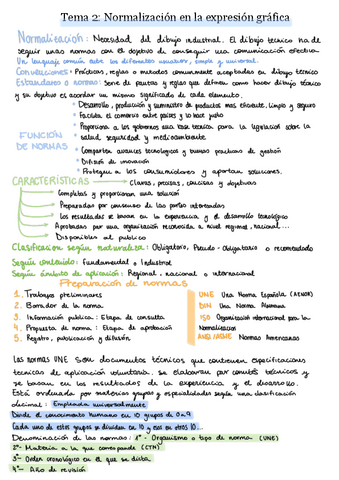 Tema 2: Normalización en la expresión gráfica
Normalización: Necesidad del dibujo industrial. El dibujo técnico ha de
seguir unas normas con el objetivo de conseguir una comunicación efectiva.
Un lenguaje común entre los diferentes usuarios, simple y universal.
Convenciones: Prácticas, reglas o métodos comunmente aceptados en dibujo técnico
Estándares o normas: Serie de pautas y reglas que definen como hacer dibujo técnico
y su objetivo es acordar un mismo significado de cada elemento.
FUNCIÓN DE NORMAS
* Desarrollo, producción y suministro de productos mas eficiente, limpio y seguro
* Facilita el comercio entre países y lo hace justo
* Proporciona a los gobiernos una base técnica para la legislación sobre la
* salud, seguridad y medioambiente
* Comparten avances tecnológicos y buenas practicas de gestión
* Difusión de innovación
* Protegen a los consumidores y aportan soluciones.
CARACTERÍSTICAS → Claras, precisas, concisas y objetivas
Completas y proporcionan una solución
Preparadas por consenso de las partes interesadas
Los resultados se basan en la experiencia y el desarrollo tecnológico
Aprobadas por una organización reconocida a nivel regional, nacional ...
Disponibles al publico
Clasificación según naturaleza: Obligatorio, Pseudo-Obligatorio o recomendado
Según contenido: Fundamental o Industrial
Según ámbito de aplicación: Regional, nacional o internacional
Preparación de normas
1. Trabajos preliminares
2. Borrador de la norma
3. Información publica: Etapa de consulta
4. Propuesta de norma: Etapa de aprobación
5. Registro, publicación y difusión
UNE Una Norma Española (AENOR)
DIN Una Norma Alemana
ISO Organización internacional para la
Normalización
ANSI/ASME Normas Americanas
Las normas UNE Son documentos técnicos que contienen especificaciones
tecnicas de aplicación voluntaria. Se elaboran por comités técnicos y
se basan en los resultados de la experiencia y el desarrollo.
Está ordenada por materias grupos y especialidades según una clasificación
decimal: Empleada universalmente
Divide el conocimiento humano en 10 grupos de 0 a 9
Cada uno de estos grupos se dividen en 10 y esos en otros 10...
Denominación de las normas: 1º- Organismo o tipo de norma (UNE)
2º- Materia a la que corresponde (CTN)
3º- Orden cronológico en el que se dicta
4º- Año de revisión